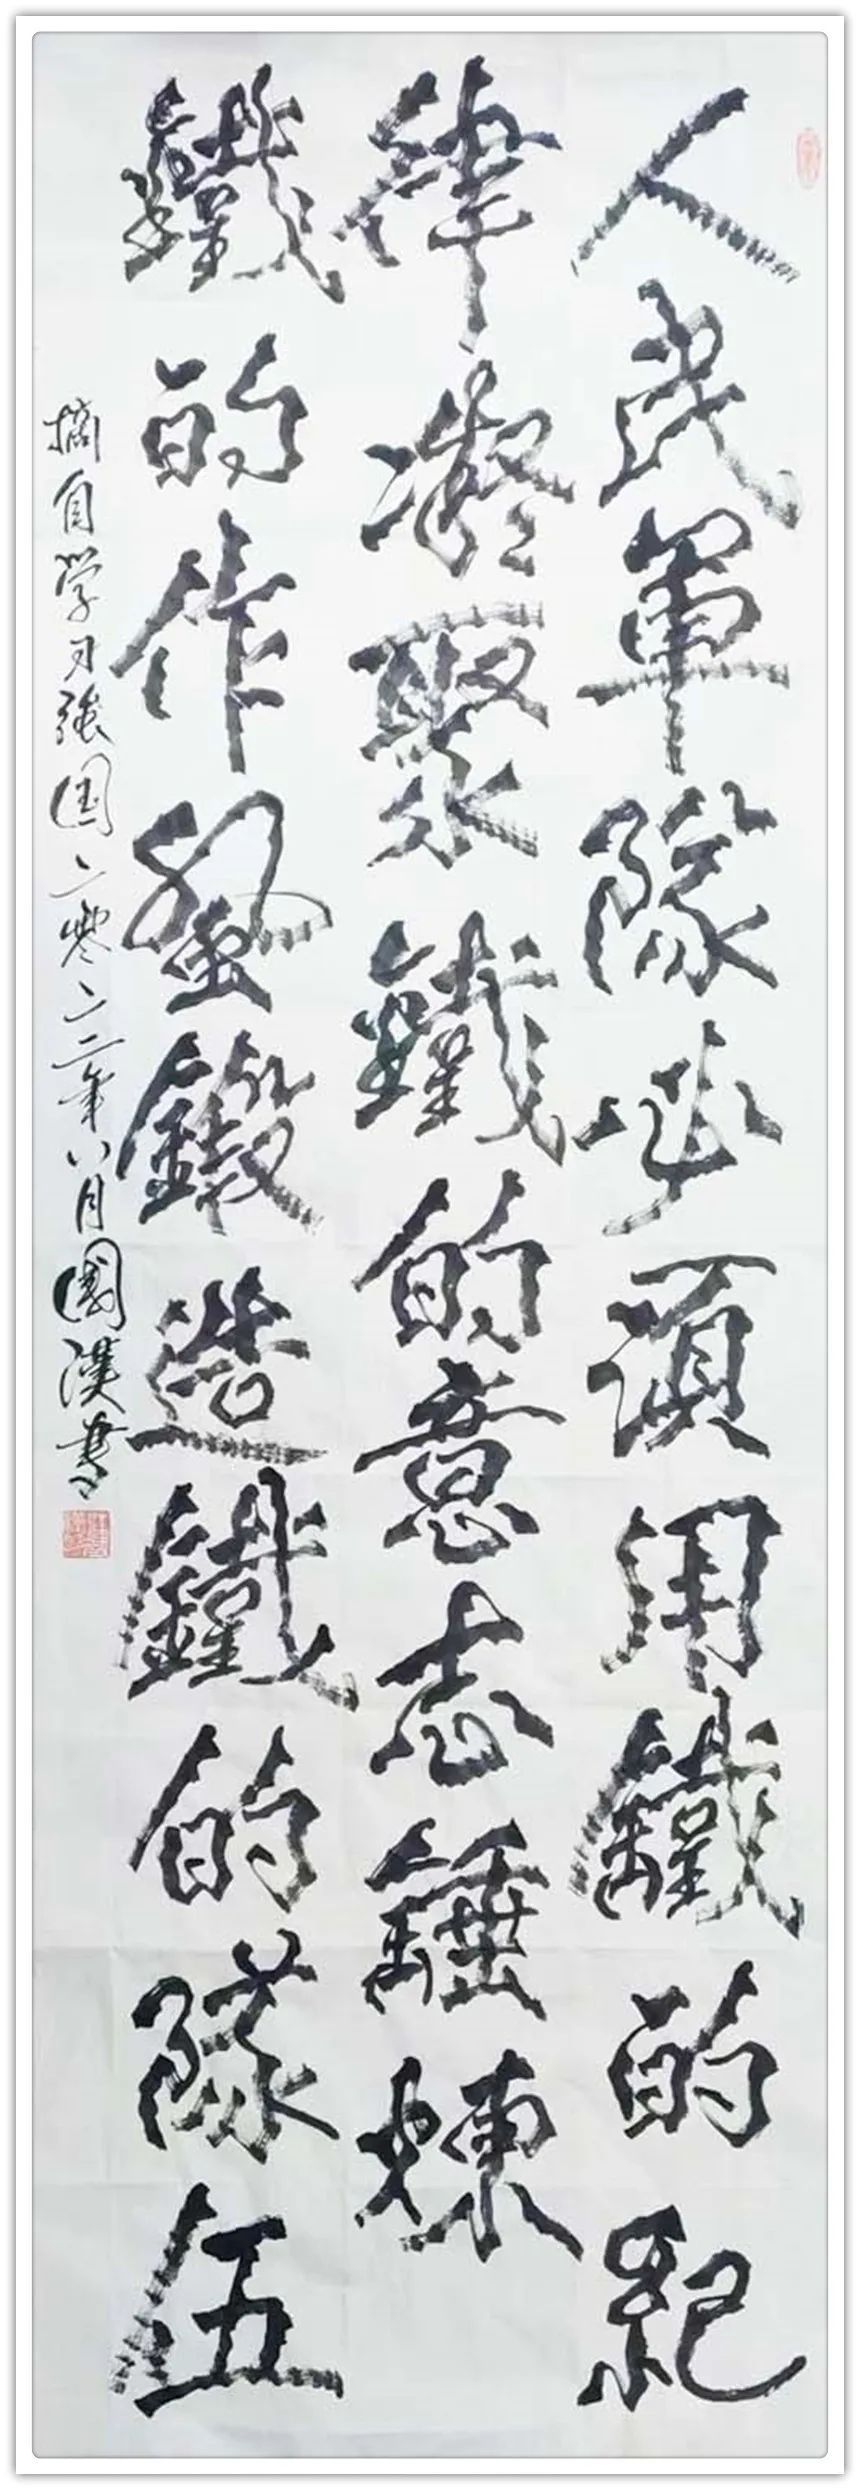 人民軍隊必須用鐵的紀
律凝聚鐵的意志錘煉
鐵的作風鍛造鐵的隊伍
摘自学习强国二零二二年八月國漢書